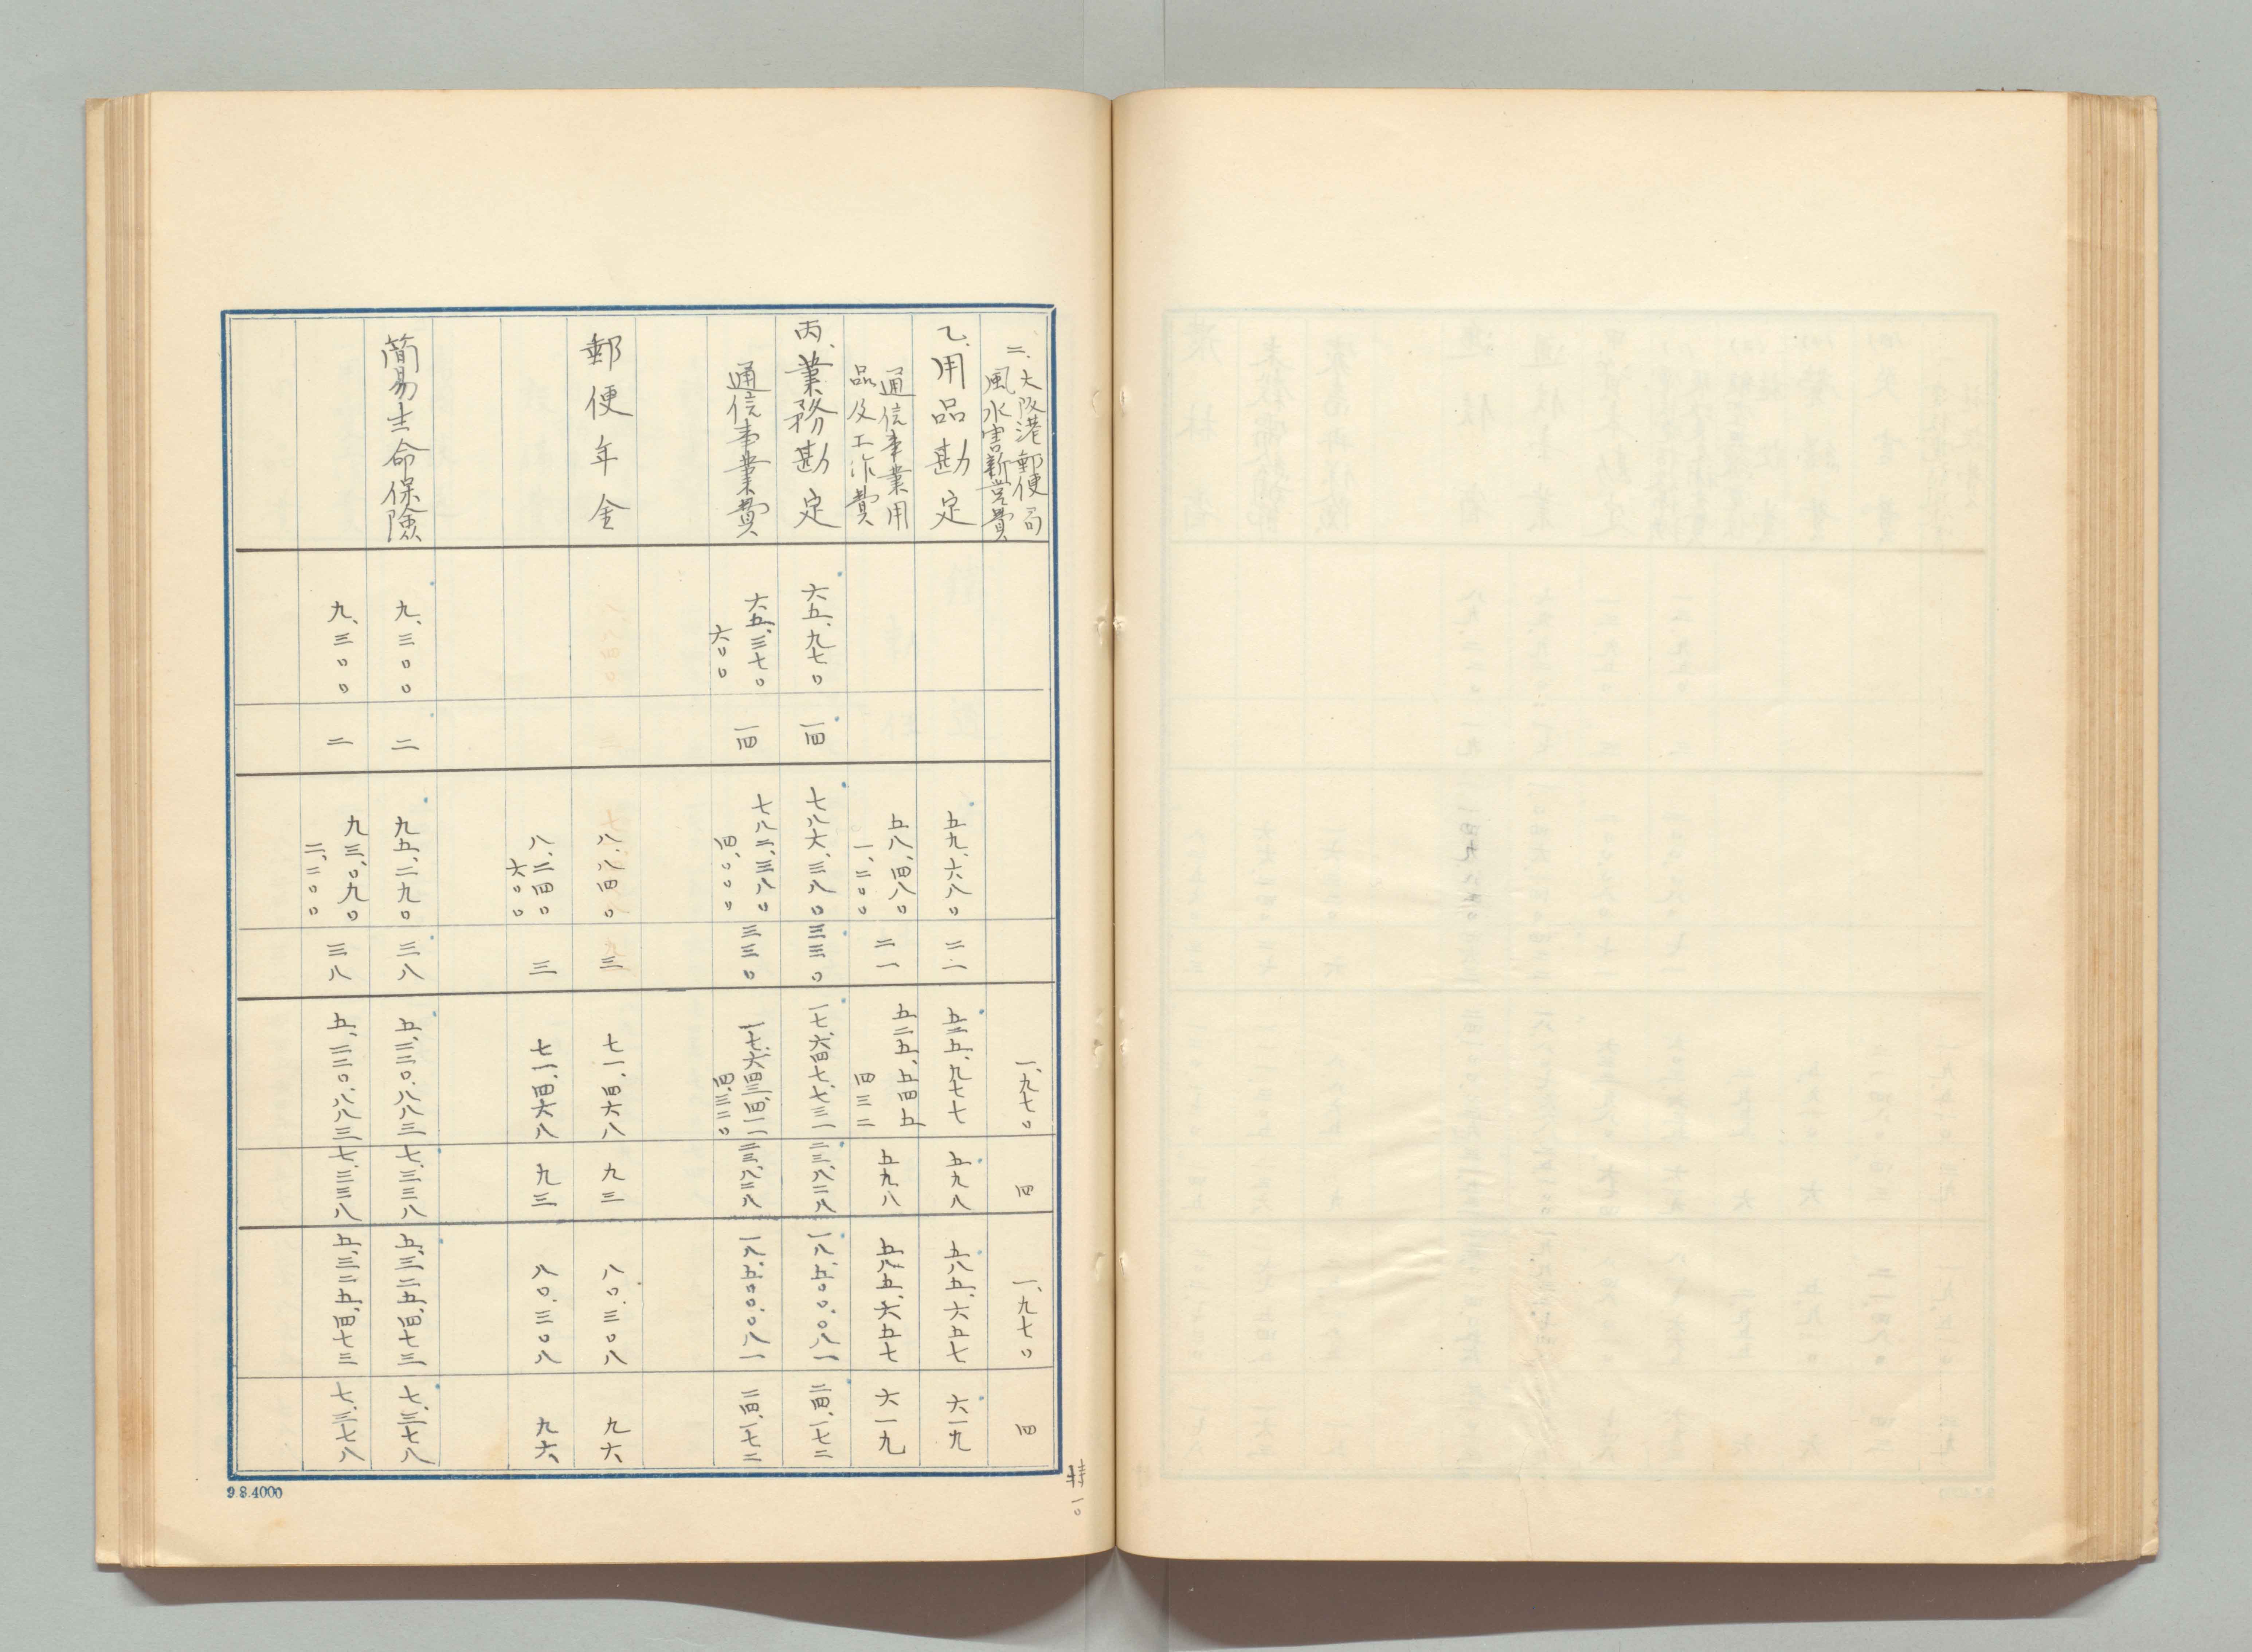 二、大阪港郵便局
風水害新営費
一、九七〇
四
一、九七〇
四
乙、用品勘定
五九、六八〇
二一
五二五、九七七
五九八
五八五、六五七
六一九
通信事業用
品及工作費
五八、四八〇
一、二〇〇
二一
五二五、五四五
四三二
五九八
五八五、六五七
六一九
丙、業務勘定
六五、九七〇
一四
七八六、三八〇
三三〇
一七、六四七、七三一
二三、八二八
一八、五〇〇、〇八一
二四、一七二
通信事業費
六五、三七〇
六〇〇
一四
七八二、三八〇
四、〇〇〇
三三〇
一七、六四三、四一一
四、三二〇
二三、八二八
一八、五〇〇、〇八一
二四、一七二
郵便年金
八、八四〇
三
七一、四六八
九三
八〇、三〇八
九六
八、二四〇
六〇〇
三
七一、四六八
九三
八〇、三〇八
九六
簡易生命保険
九、三〇〇
二
九五、二九〇
三八
五、二二〇、八八三
七、三三八
五、三二五、四七三
七、三七八
九、三〇〇
二
九三、〇九〇
二、二〇〇
三八
五、二二〇、八八三
七、三三八
五、三二五、四七三
七、三七八
特一〇
9.8.4000